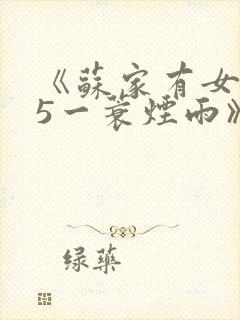 《蘇家有女
5一蓑煙雨》
绿藥